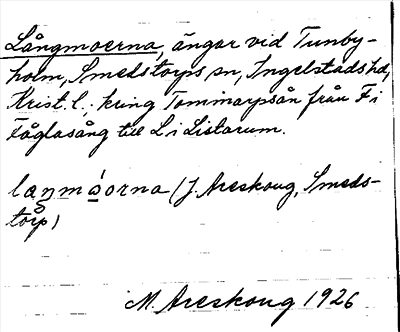 Långmoerna, ängar vid Tunby-
holm, Smedstorps sn, Ingelstads hd,
Krist. l.; kring Tommarpsån från F i
Fåglasång till L i Listarum.
laŋmóorna (J. Areskoug, Smeds-
torp)
M. Areskoug 1926